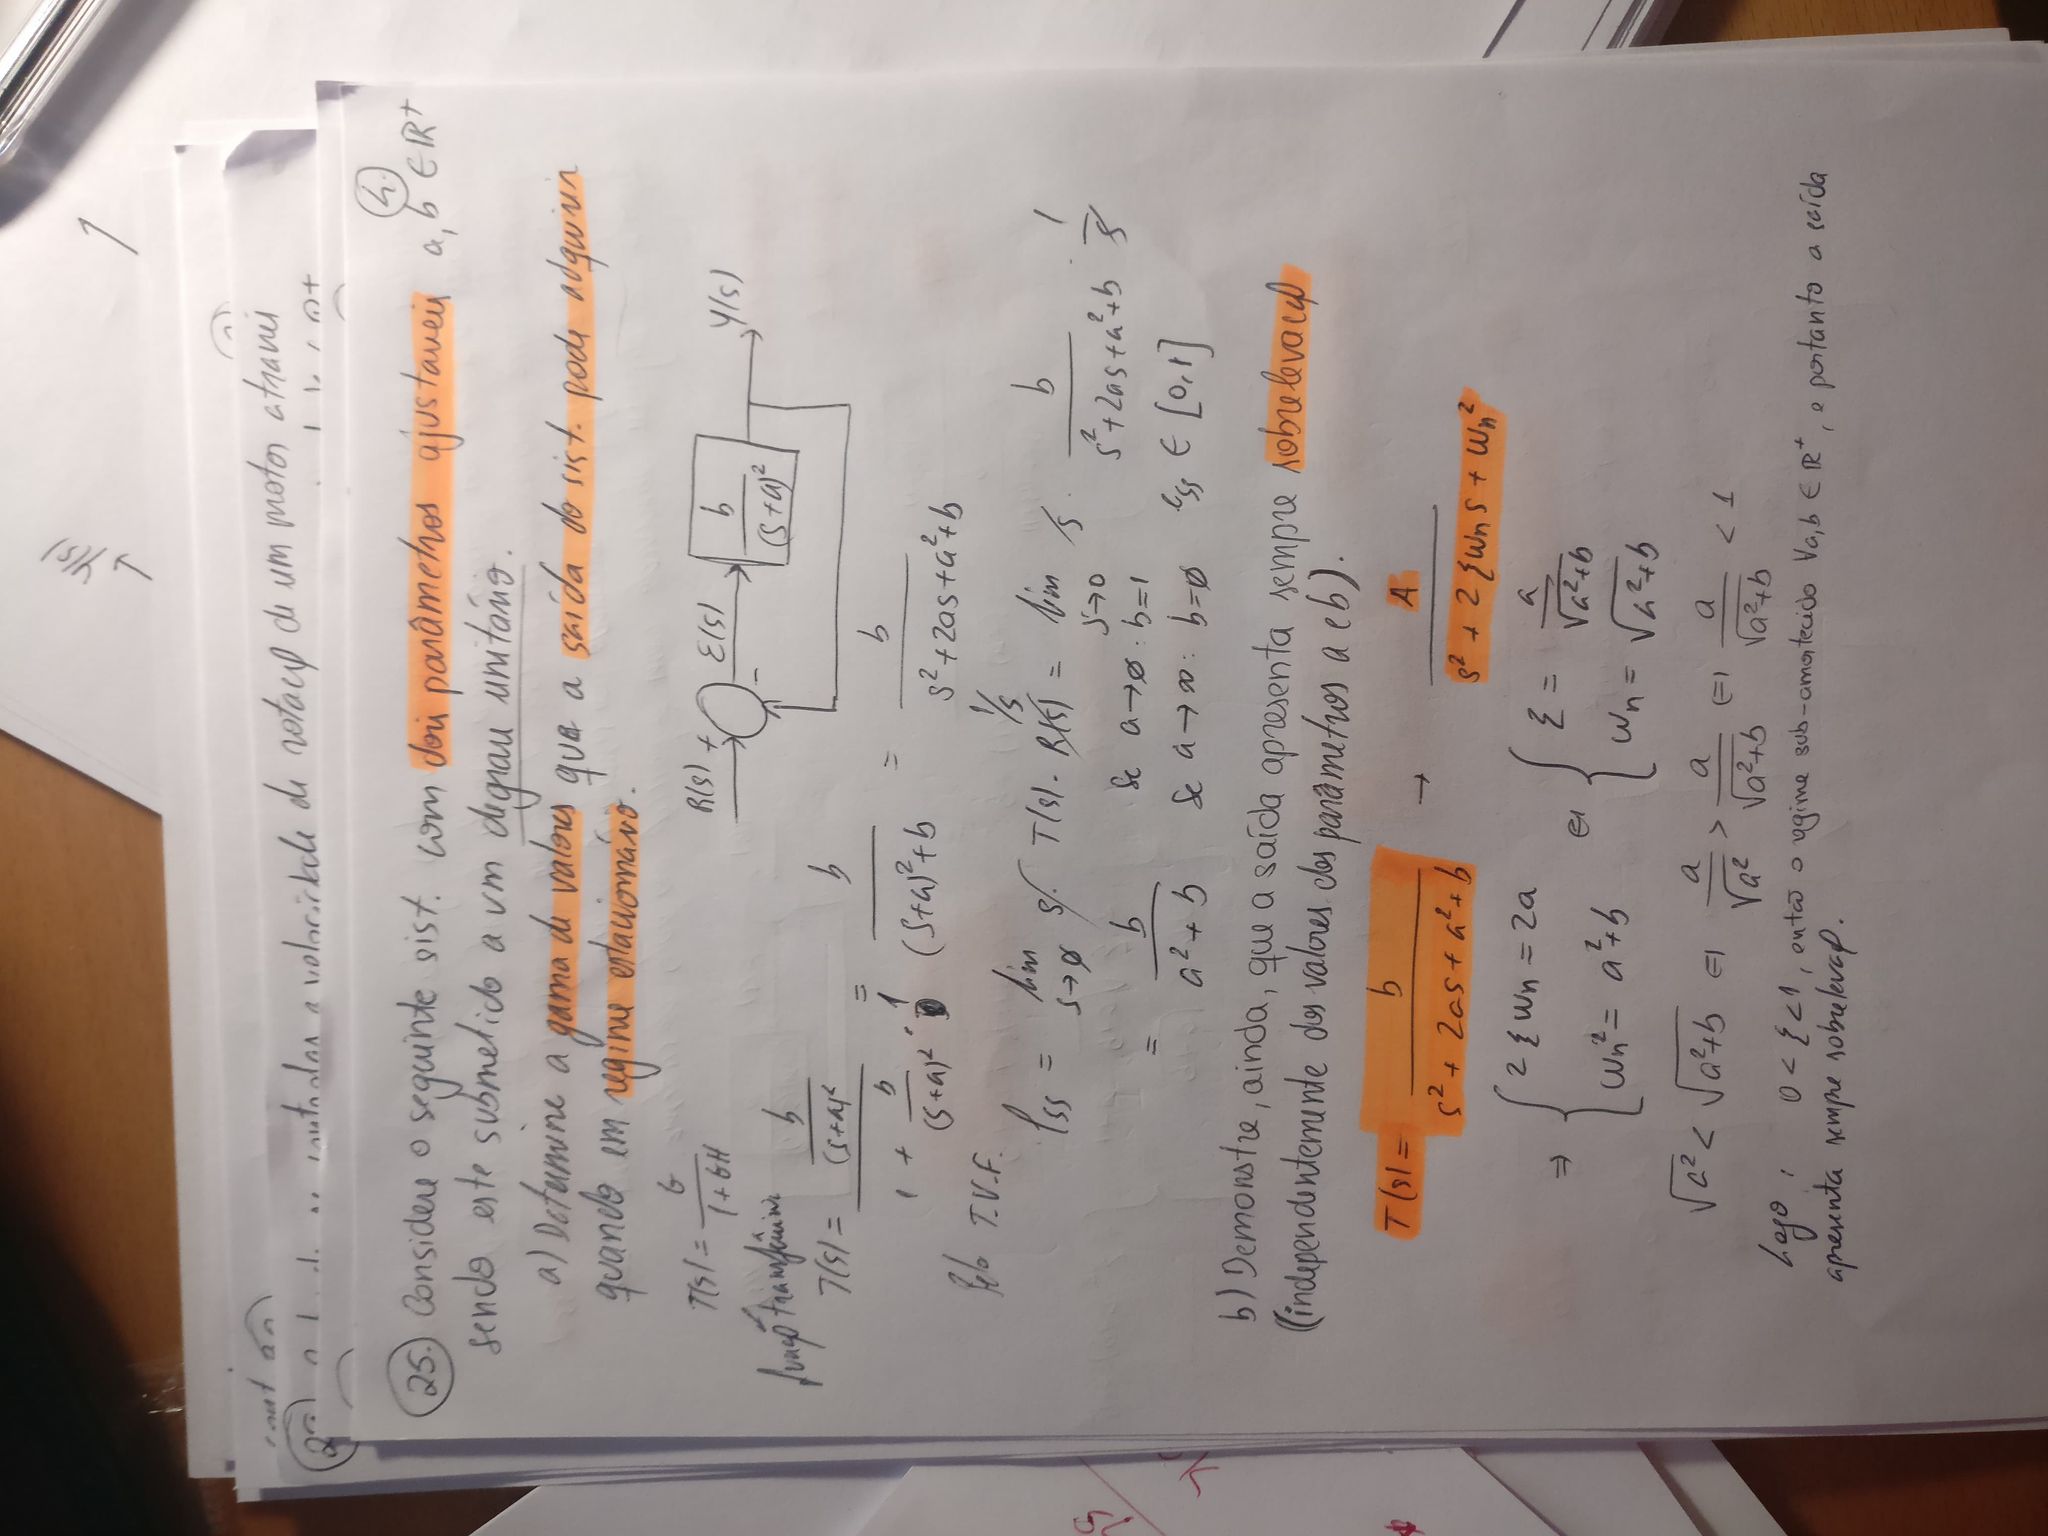 → Y(s)
1
cont
2
velocidade de rotaçφ de um motor através
4.
25. Considere o seguinte sist. com dois parâmetros ajustaveis a, b ∈ R⁺
sendo este submetido a um degrau unitário.
a) Determine a gama de valores que a saída do sist. pode adquirir
quando em regime estacionário.
T(s) = G / (1 + GH)
R(s) + − E(s) b / (s+a)² Y(s)
funçφ transferência
T(s) = (b / (s+a)²) / (1 + b / (s+a)² · 1) = b / ((s+a)² + b) = b / (s² + 2as + a² + b)
Pelo T.V.F.
1/s
lss = lim s→0 s · T(s) · R(s) = lim s→0 s · b / (s² + 2as + a² + b) · 1/s
= b / (a² + b) Se a → 0 : b = 1
Se a → ∞ : b = 0 ess ∈ [0,1]
b) Demonstre, ainda, que a saída apresenta sempre sobrelevaçφ
(independentemente dos valores dos parâmetros a e b).
T(s) = b / (s² + 2as + a² + b) → A / (s² + 2ξωn s + ωn²)
⇒ { 2ξωn = 2a ⇔ { ξ = a / √(a²+b)
ωn² = a² + b ωn = √(a²+b)
√a² < √(a²+b) ⇔ a / √a² > a / √(a²+b) ⇔ a / √(a²+b) < 1
Logo, 0 < ξ < 1, então o regime sub-amortecido ∀a,b ∈ R⁺, e portanto a saída
apresenta sempre sobrelevaçφ.